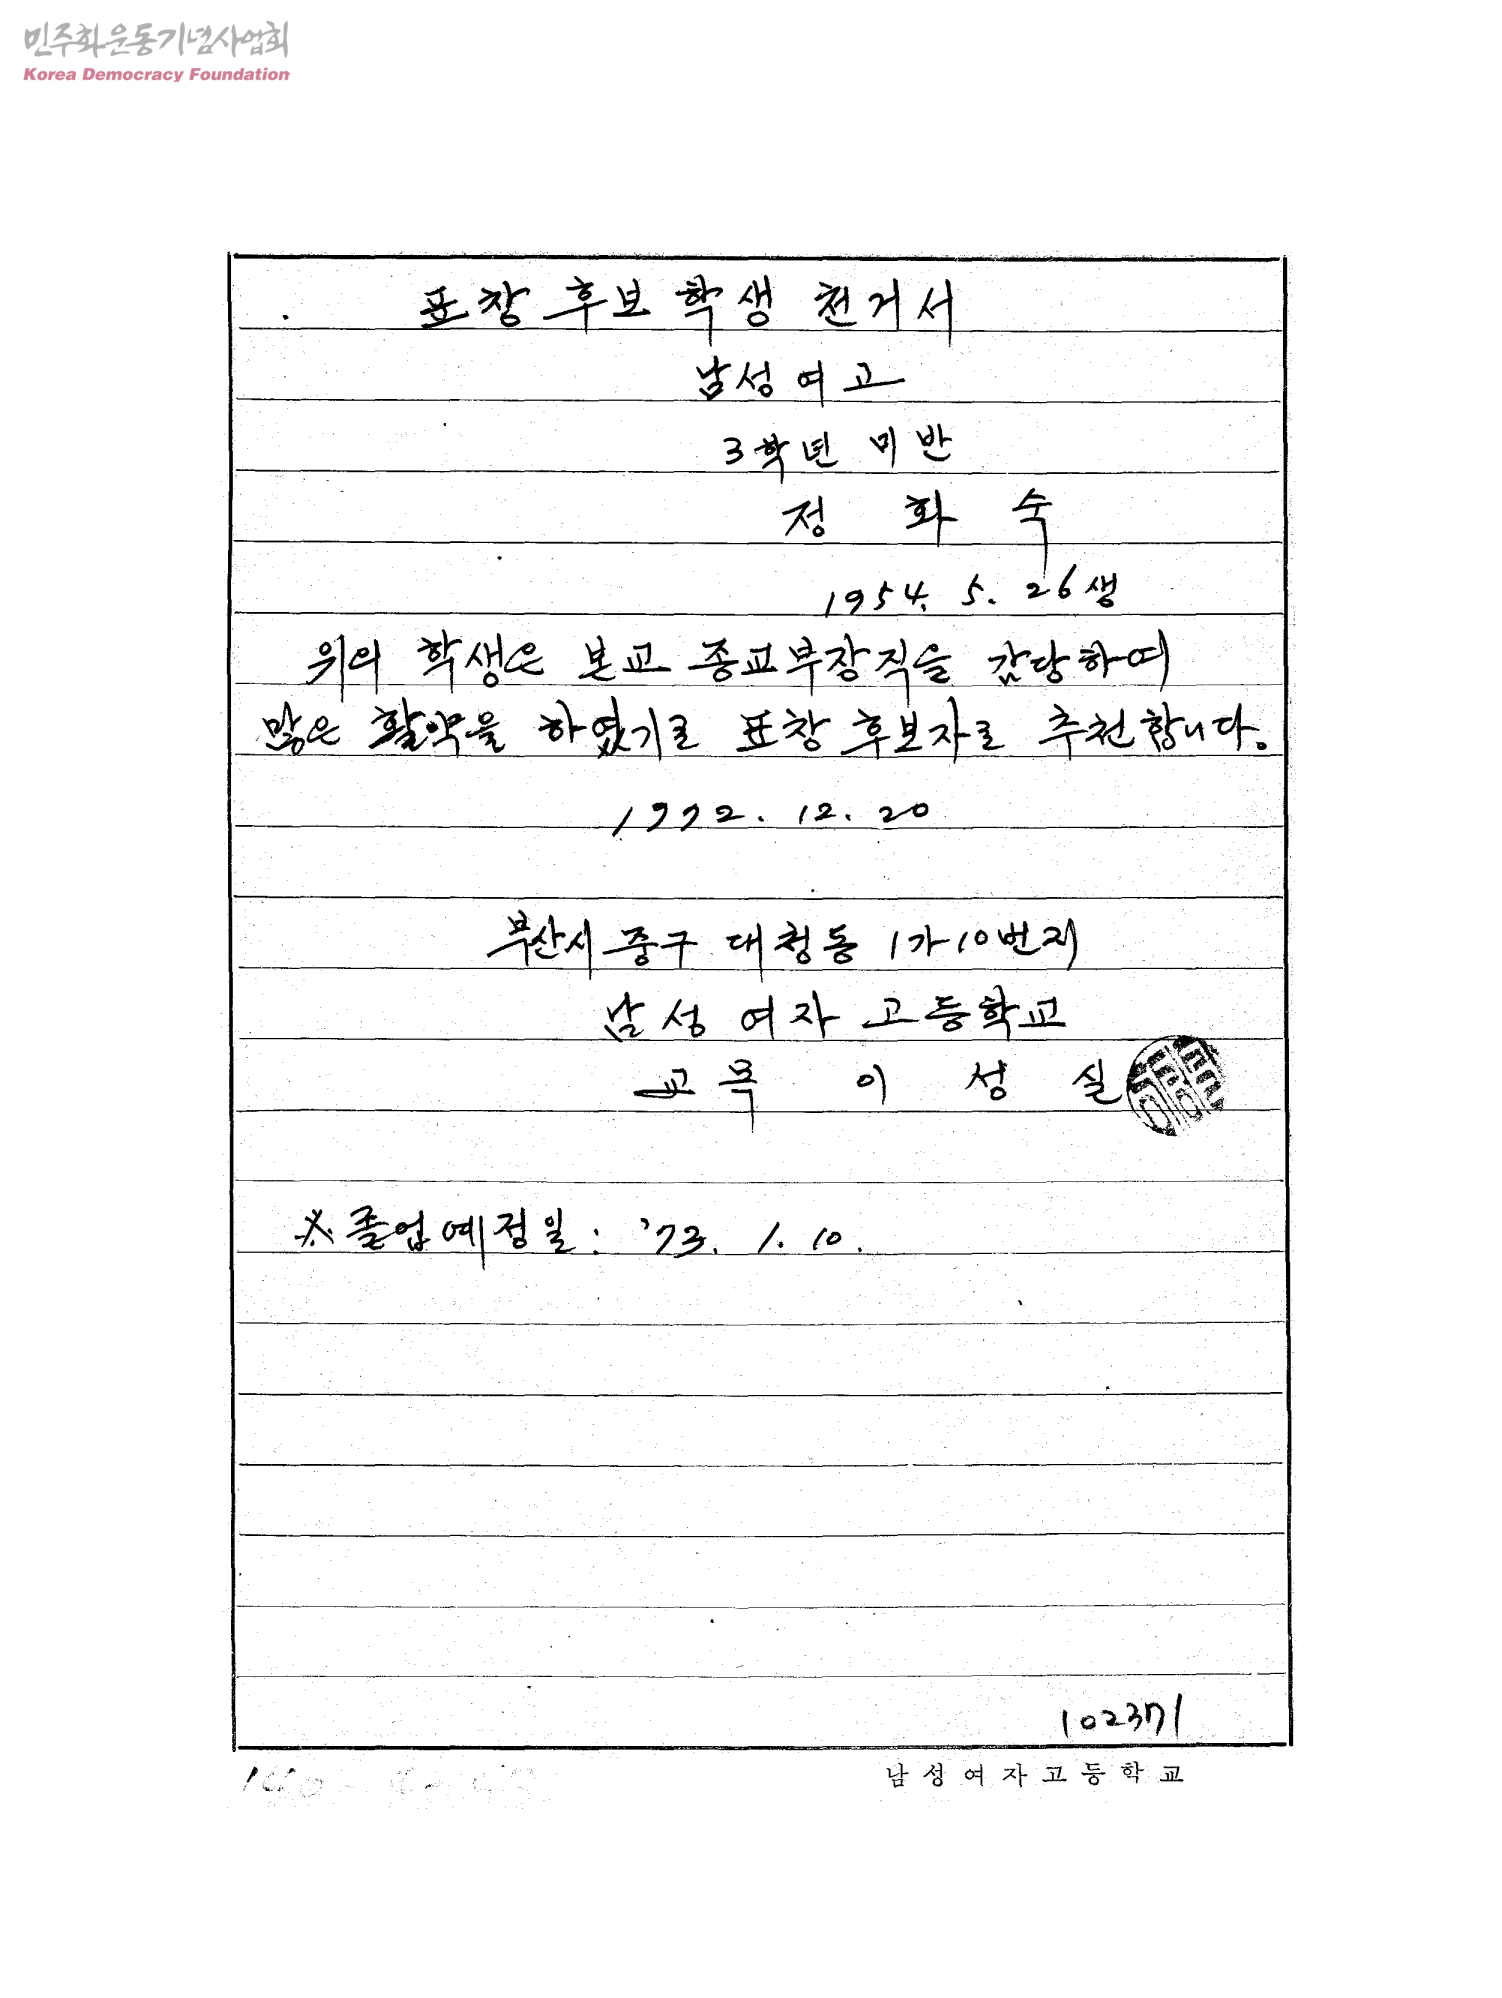 민주화운동기념사업회
Korea Democracy Foundation
표창 후보 학생 천거서
남성여고
3학년 미반
정 화 숙
1954. 5. 26생
위의 학생은 본교 종교부장직을 감당하여
많은 활약을 하였기로 표창 후보자로 추천합니다.
1972. 12. 20
부산시 중구 대청동 1가 10번지
남성 여자 고등학교
교목 이 성 실
※ 졸업예정일 : '73. 1. 10.
102371
남성여자고등학교